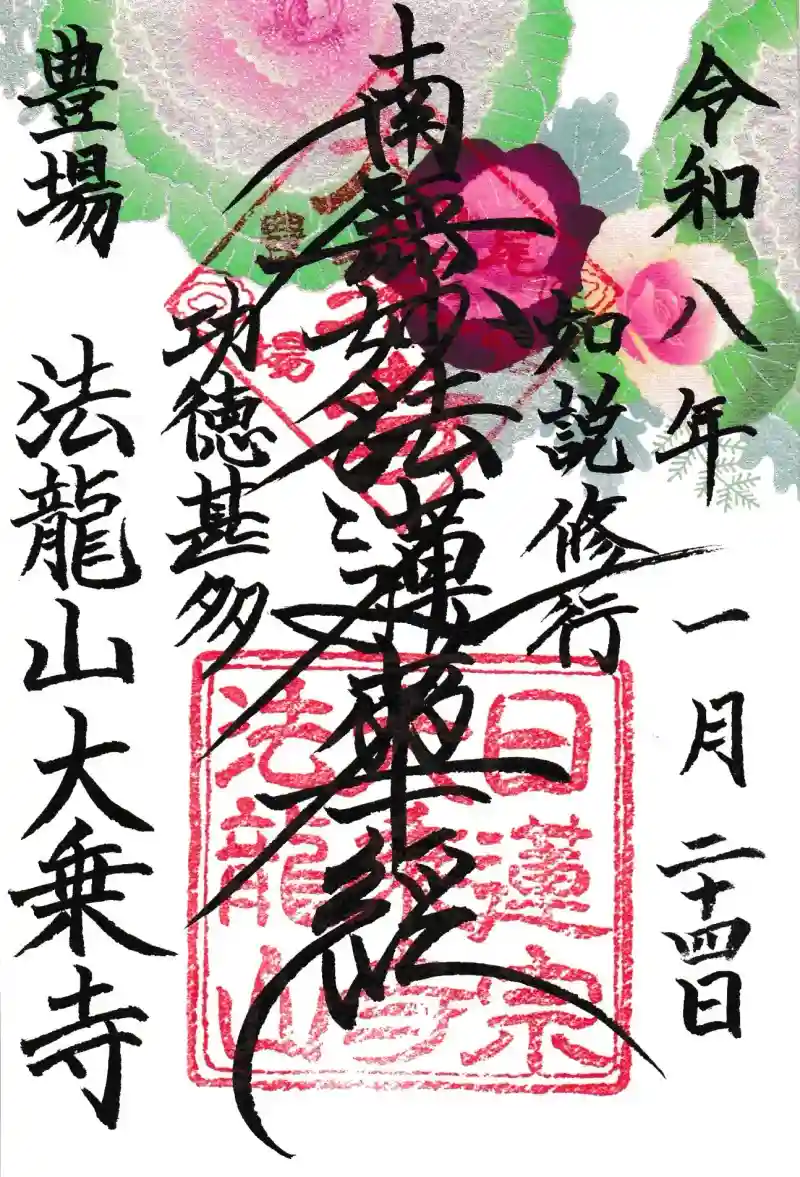 令和八年 一月 二十四日
如説修行
南無妙法蓮華経
功徳甚多
豊場 法龍山大乗寺
豊場
日蓮宗
大乗寺
法龍山